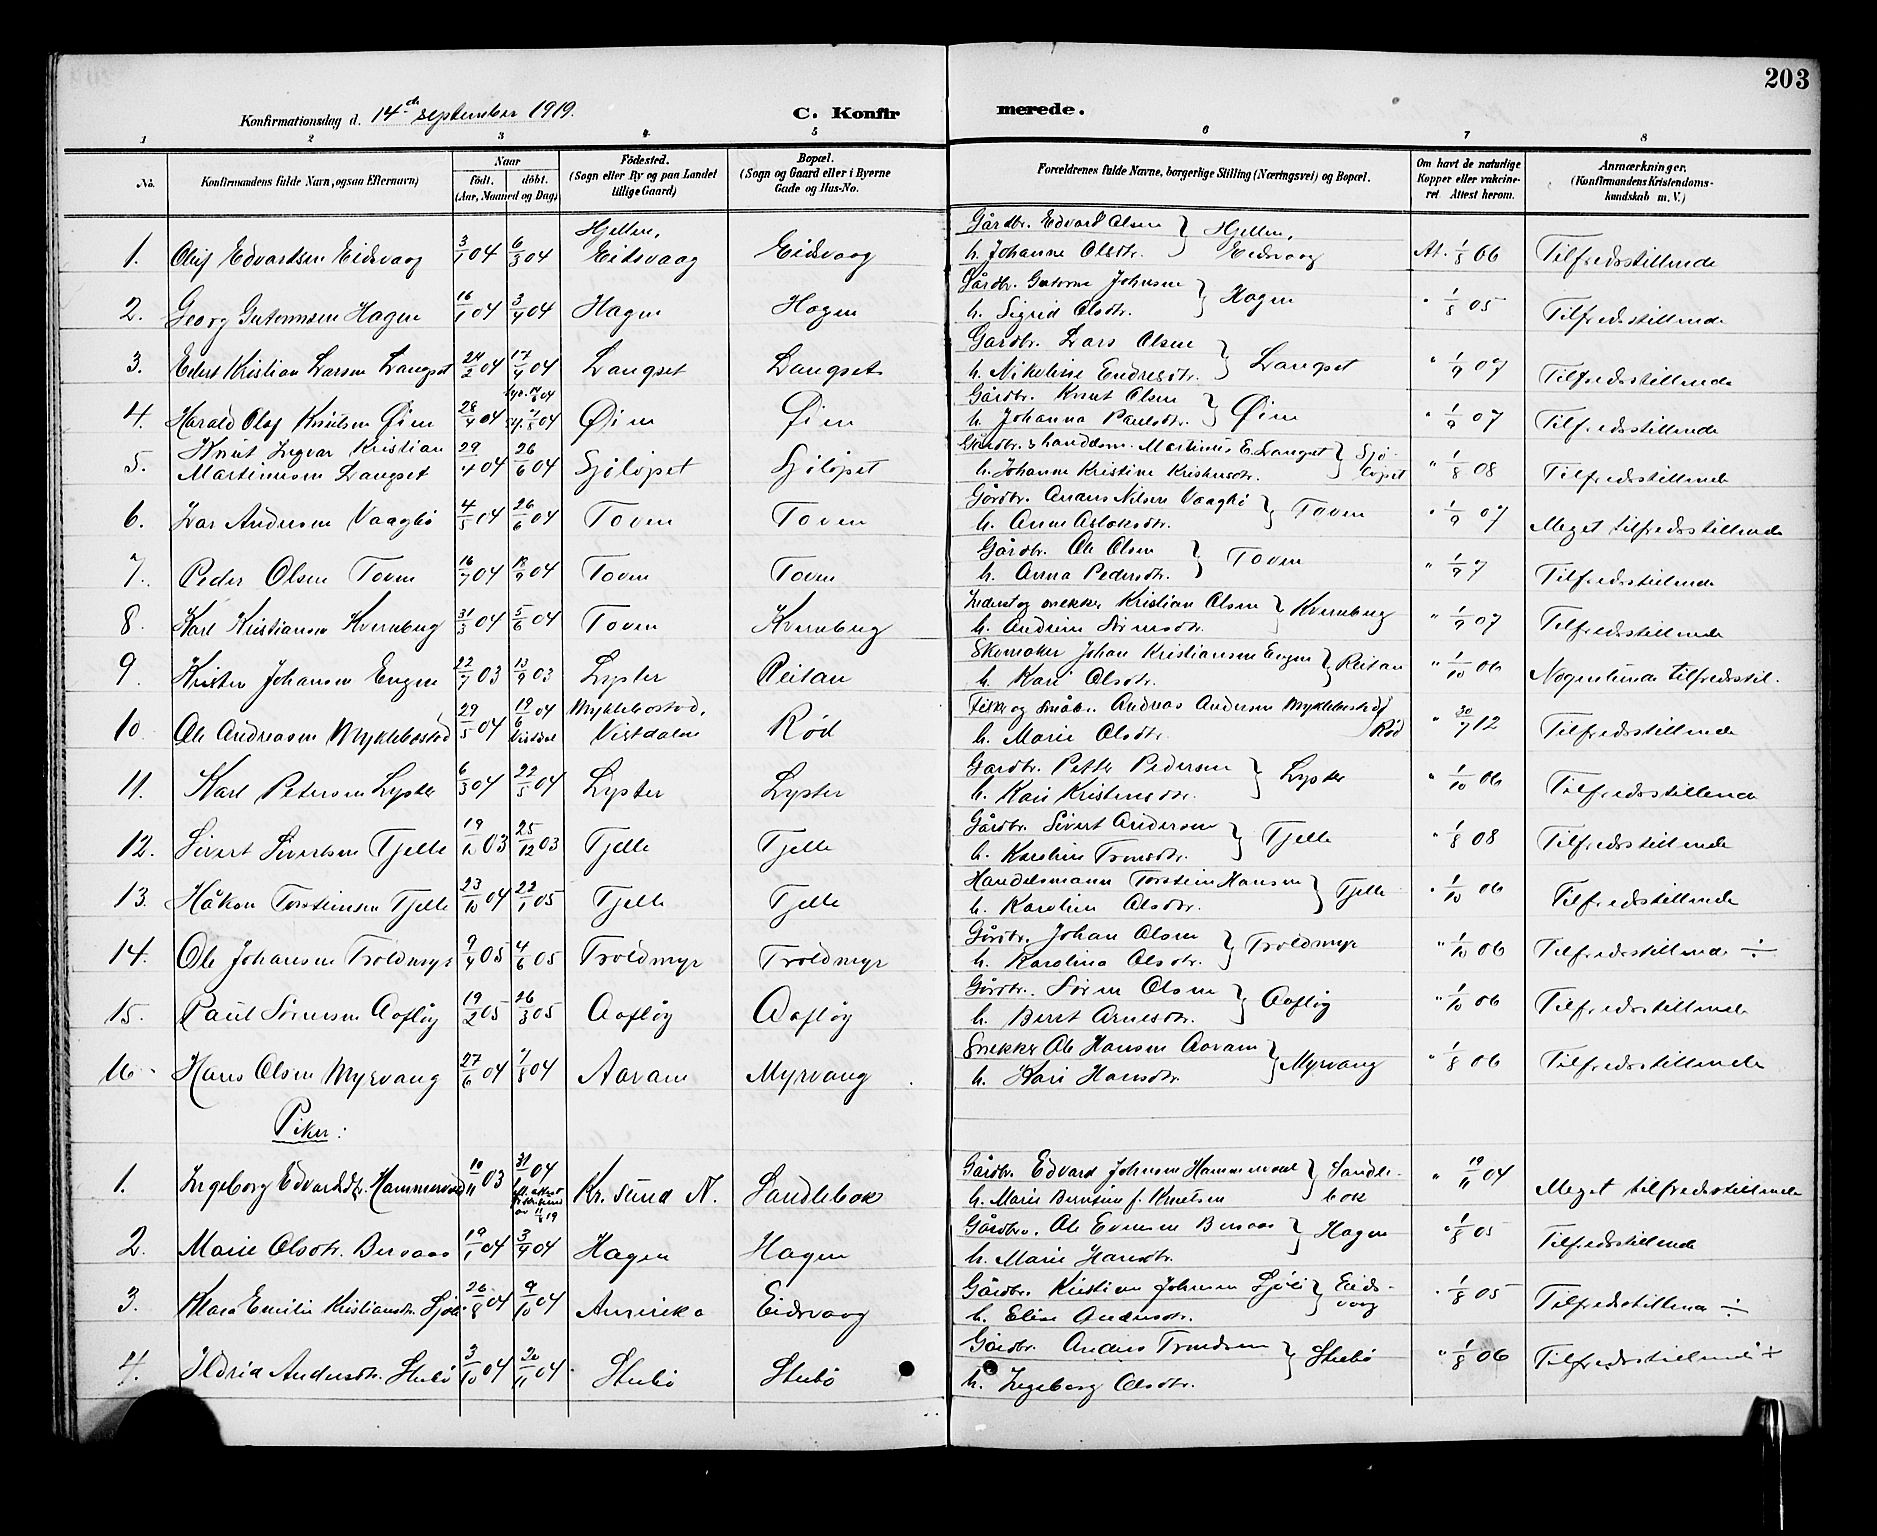 203
Konfirmationsdag d. 14de september 1919.
C. Konfirmerede.
1 2 3 4 5 6 7 8
No.
Konfirmandens fulde Navn, ogsaa Efternavn)
Naar
födt. döbt.
(Aar, Maaned og Dag)
Födested.
(Sogn eller By og paa Landet
tillige Gaard)
Bopæl.
(Sogn og Gaard eller i Byerne
Gade og Hus-No.
Forældrenes fulde Navne, borgerlige Stilling (Næringsvei) og Bopæl.
Om havt de naturlige
Kopper eller vakcine-
ret Attest herom.
Anmærkninger.
(Konfirmandens Kristendoms-
kundskab m. V.)
1. Oluf Edvardsen Eidsvaag 3/1 04 6/3 04 Hjellen, Eidsvaag Eidsvaag Gårdbr. Edvard Olsen h. Johanne Olsdtr. } Hjellen, Eidsvaag At. 1/8 06 Tilfredsstillende
2. Georg Gutormsen Hagen 16/1 04 3/4 04 Hagen Hagen Gårdbr. Gutorm Johnsen h. Sigrid Olsdtr. } Hagen " 1/8 05 Tilfredsstillende
3. Edert Kristian Larsen Langset 24/2 04 17/4 04 Langset Langset Gardbr. Lars Olsen h. Nikoline Endresdtr. } Langset " 1/9 07 Tilfredsstillende
4. Harald Olaf Knutsen Øien 28/4 04 Øien Øien Gårdbr. Knut Olsen h. Johanna Paulsdtr. } Øien " 1/9 07 Tilfredsstillende
5. Knut Ingvar Kristian Martinusen Langset 29/4 04 26/6 04 Sjöløpset Sjöløpset Gårdbr. & handelsm. Martinus E. Langset h. Johanne Kristine Kristensdtr. } Sjöløpset " 1/8 08 Tilfredsstillende
6. Lars Andersen Vaagbö 4/5 04 26/6 04 Toven Toven Gårdbr. Anders Nilsen Vaagbö h. Anne Aslaksdtr. } Toven " 1/9 07 Meget tilfredsstillende
7. Peder Olsen Toven 16/7 04 18/9 04 Toven Toven Gårdbr. Ole Olsen h. Anna Pedersdtr. } Toven " 1/9 7 Tilfredsstillende
8. Karl Kristiansen Kvernberg 31/3 04 5/6 04 Toven Kvernberg Inderst og snekker Kristian Olsen h. Andrine Sörensdtr. } Kvernberg " 1/9 07 Tilfredsstillende
9. Krister Johansen Engen 22/7 03 13/9 03 Lyster Reitan Skomaker Johan Kristiansen Engen h. Kari Olsdtr. } Reitan " 1/10 06 Nogenlunde tilfredsstil.
10. Ole Andreasen Myklebostad 29/5 04 19/6 04 Vistdal Myklebostad, Vistdalen Rød Fisker og småbr. Andreas Andersen Myklebostad h. Marie Olsdtr. } Rød " 30/7 12 Tilfredsstillende
11. Karl Petersen Lyster 6/3 04 22/5 04 Lyster Lyster Gårdbr. Petter Pedersen h. Kari Kristensdtr. } Lyster " 1/10 06 Tilfredsstillende
12. Sivert Sivertsen Tjelle 19/10 03 25/12 03 Tjelle Tjelle Gårdbr. Sivert Andersen h. Karoline Tronsdtr. } Tjelle " 1/8 08 Tilfredsstillende
13. Håkon Torsteinsen Tjelle 23/10 04 22/1 05 Tjelle Tjelle Handelsmann Torstein Hansen h. Karoline Olsdtr. } Tjelle " 1/10 06 Tilfredsstillende
14. Ole Johansen Troldmyr 9/4 05 4/6 05 Troldmyr Troldmyr Gårdbr. Johan Olsen h. Karolina Olsdtr. } Troldmyr " 1/10 06 Tilfredsstillende ÷
15. Paul Sörensen Aafløy 19/2 05 26/3 05 Aafløy Aafløy Gårdbr. Sören Olsen h. Beret Arnesdtr. } Aafløy " 1/10 06 Tilfredsstillende
16. Hans Olsen Myrvang 27/6 04 7/8 04 Aaram Myrvang Snekker Ole Hansen Aaram h. Kari Hansdtr. } Myrvang " 1/8 06 Tilfredsstillende
Piker:
1. Ingeborg Edvardsdtr. Hammervold 10/11 03 31/1 04 Kr. sund N. Sandlebok Gårdbr. Edvard Johnsen Hammervold h. Marie Berntine f. Knutsen } Sandlebok " 19/11 04 Meget tilfredsstillende
2. Marie Olsdtr. Bersaas 19/1 04 3/4 04 Hagen Hagen Gårdbr. Ole Evensen Bersaas h. Marie Hansdtr. } Hagen " 1/8 05 Tilfredsstillende
3. Klara Emilie Kristiansdtr. Sjöli 26/8 04 9/10 04 Amerika Eidsvaag Gårdbr. Kristian Johnsen Sjöli h. Elise Andersdtr. } Eidsvaag " 1/8 05 Tilfredsstillende ÷
4. Ildrid Andersdtr. Stubö 3/10 04 20/11 04 Stubö Stubö Gårdbr. Anders Trondsen h. Ingeborg Olsdtr. } Stubö " 1/8 06 Tilfredsstillende +